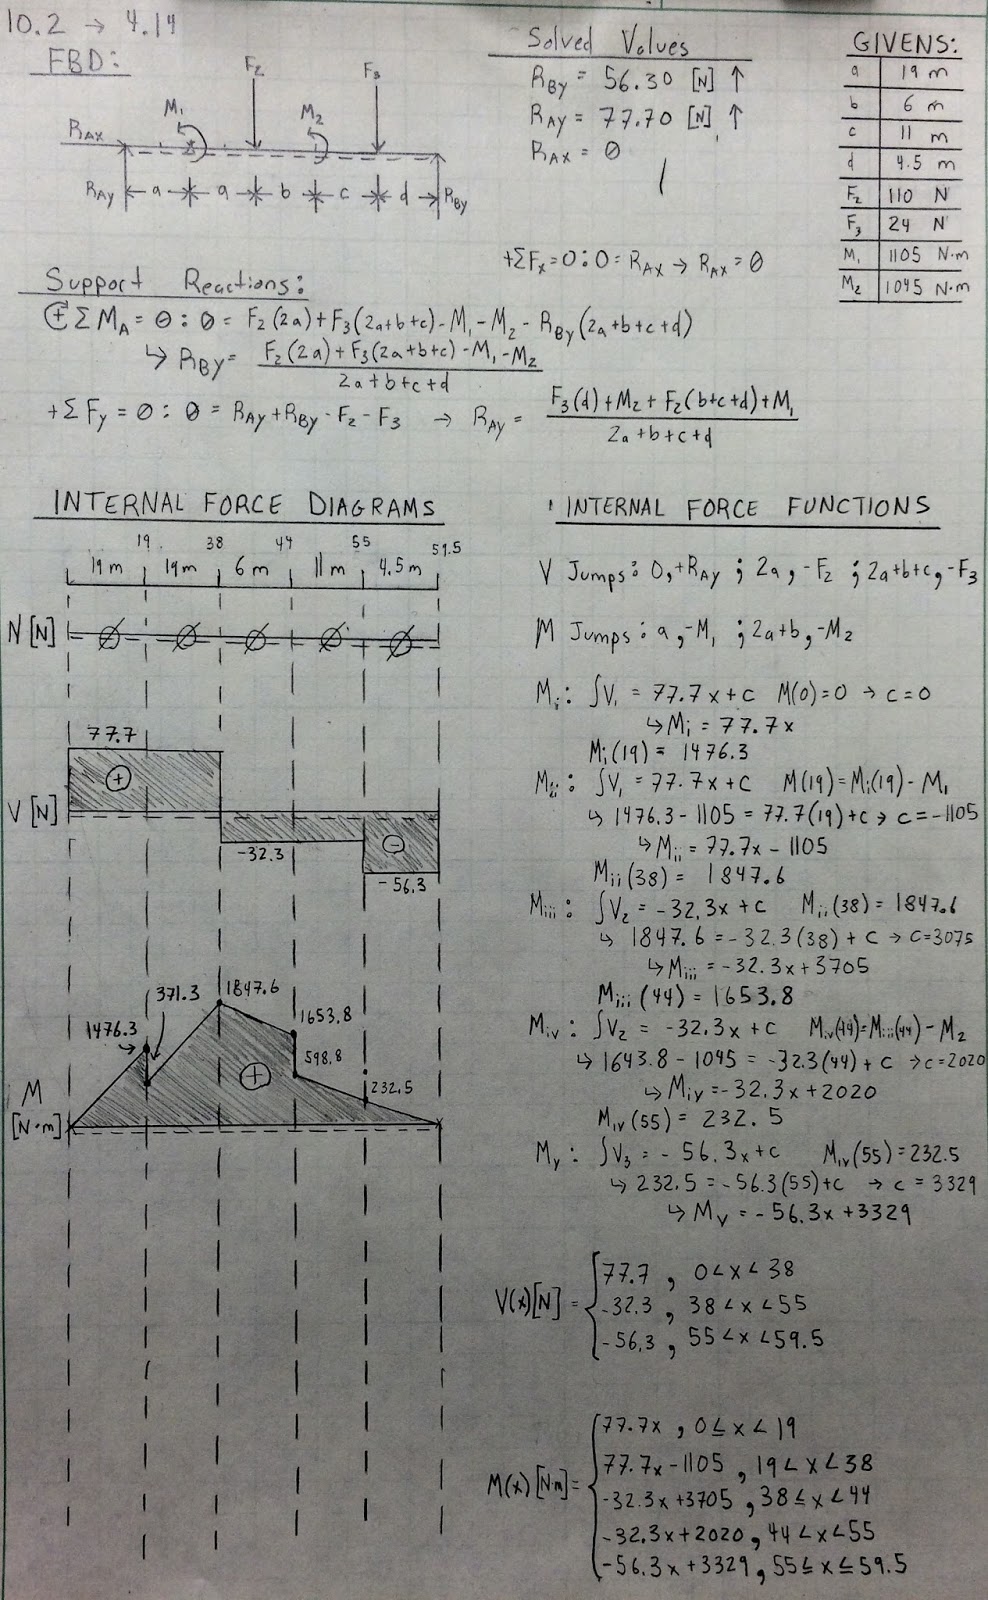 10.2 → 4.14
FBD:
F₂
F₃
M₁
M₂
R_AX
R_AY
a
a
b
c
d
R_BY
Solved Values
R_BY = 56.30 [N] ↑
R_AY = 77.70 [N] ↑
R_AX = 0
GIVENS:
a 19 m
b 6 m
c 11 m
d 4.5 m
F₂ 110 N
F₃ 24 N
M₁ 1105 N·m
M₂ 1045 N·m
+ΣFx=0:0=R_AX → R_AX=0
Support Reactions:
+ΣM_A=0:0=F₂(2a)+F₃(2a+b+c)-M₁-M₂-R_BY(2a+b+c+d)
↳ R_BY= F₂(2a)+F₃(2a+b+c)-M₁-M₂
2a+b+c+d
+ΣFy=0:0=R_AY+R_BY-F₂-F₃ → R_AY= F₃(d)+M₂+F₂(b+c+d)+M₁
2a+b+c+d
INTERNAL FORCE DIAGRAMS
19 38 44 55 59.5
19m 19m 6m 11m 4.5m
N[N] Ø Ø Ø Ø Ø
77.7
+
V[N]
-32.3
-
-56.3
1476.3
371.3
1847.6
1653.8
598.8
232.5
+
M
[N·m]
INTERNAL FORCE FUNCTIONS
V Jumps: 0,+R_AY ; 2a,-F₂ ; 2a+b+c,-F₃
M Jumps: a,-M₁ ; 2a+b,-M₂
Mi: ∫V₁ = 77.7x+c M(0)=0 → c=0
↳Mi = 77.7x
Mi(19) = 1476.3
Mii: ∫V₁ = 77.7x+c M(19)=Mi(19)-M₁
↳ 1476.3-1105 = 77.7(19)+c → c=-1105
↳Mii = 77.7x-1105
Mii(38) = 1847.6
Miii: ∫V₂ = -32.3x+c Mii(38)=1847.6
↳ 1847.6=-32.3(38)+c → c=3075
↳Miii = -32.3x+3705
Miii(44)=1653.8
Miv: ∫V₂ = -32.3x+c Miv(44)=Miii(44)-M₂
↳ 1643.8-1045 = -32.3(44)+c → c=2020
↳Miv=-32.3x+2020
Miv(55)=232.5
Mv: ∫V₃ = -56.3x+c Miv(55)=232.5
↳ 232.5=-56.3(55)+c → c=3329
↳Mv=-56.3x+3329
V(x)[N]= { 77.7, 0<x<38
-32.3, 38<x<55
-56.3, 55<x<59.5
M(x)[N·m]= { 77.7x, 0≤x<19
77.7x-1105, 19<x<38
-32.3x+3705, 38≤x<44
-32.3x+2020, 44<x<55
-56.3x+3329, 55≤x≤59.5